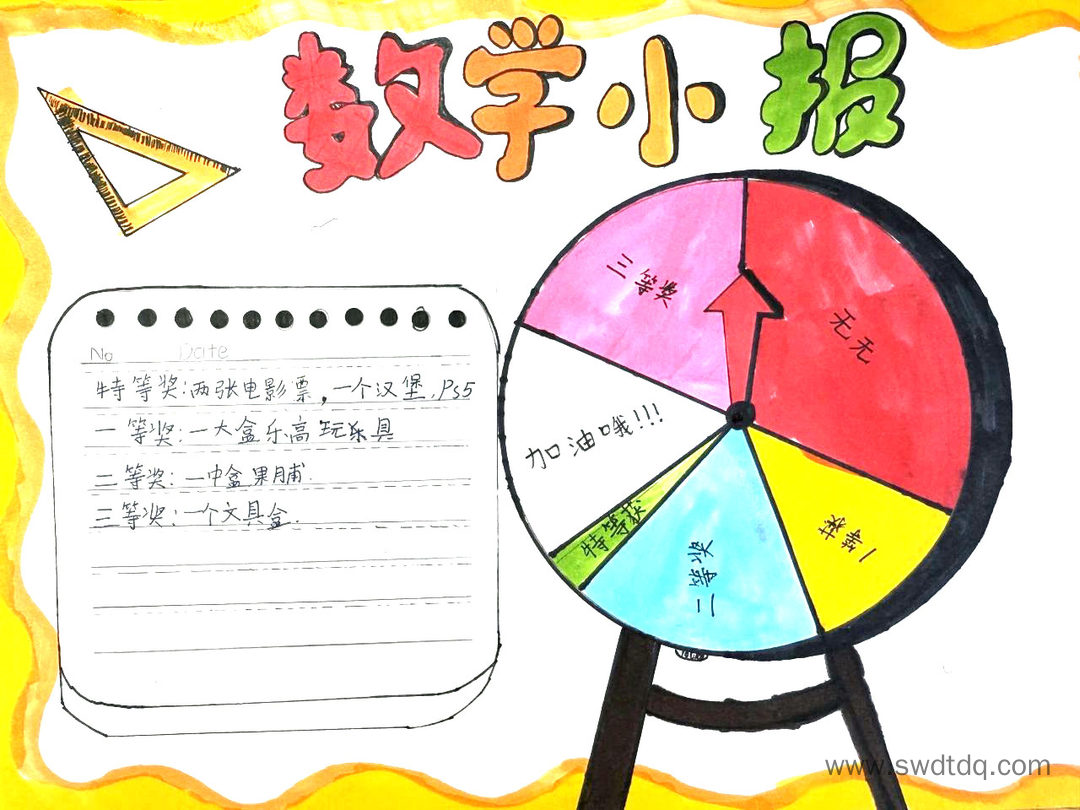 数学小报
No Date
特等奖:两张电影票,一个汉堡.Ps5
一等奖:一大盒乐高玩乐具
二等奖:一中盒果脯.
三等奖:一个文具盒.
三等奖
无无
加油哦!!!
特等获
二等奖
一等获
www.swdtdq.com